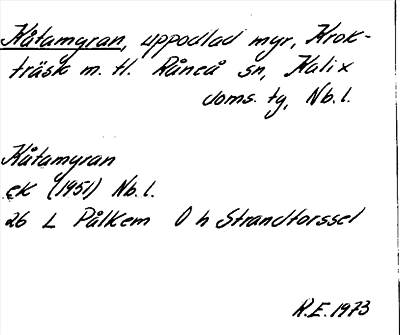 Kåtamyran, uppodlad myr, Krok-
träsk m. fl. Råneå sn, Kalix
doms. tg, Nb. l.
Kåtamyran
ek (1951) Nb. l.
26 L Pålkem 0 h Strandforssel
R.E. 1973